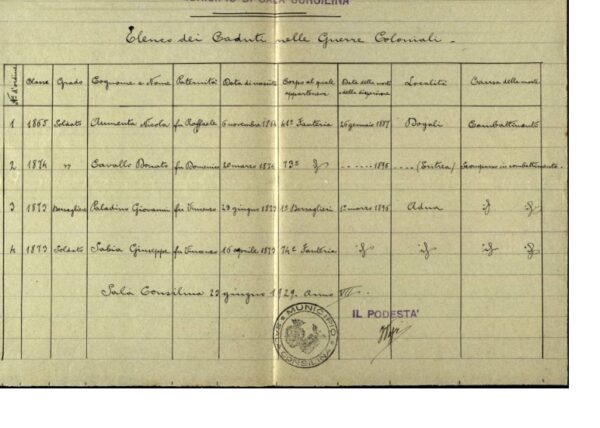 MUNICIPIO DI SALA CONSILINA
Elenco dei Caduti nelle Guerre Coloniali.
N° d'ordine Classe Grado Cognome e Nome Paternità Data di nascita Corpo al quale apparteneva Data della morte o della dispersione Località Causa della morte
1 1865 Soldato Aumenta Nicola fu Raffaele 6 novembre 41° Fanteria 26 gennaio 1887 Dogali Combattimento
2 1874 " Cavallo Donato fu Domenico 20 marzo 1874 73° ....... 1896 (Eritrea) Scomparso in combattimento.
3 1873 Bersagliere Paladino Giovanni fu Vincenzo 29 giugno 1873 1° Bersaglieri 1° marzo 1896 Adua
4 1873 Soldato Sabia Giuseppe fu Vincenzo 16 aprile 1873 74° Fanteria
Sala Consilina 23 giugno 1929. Anno VII
IL PODESTA'
MUNICIPIO
SALA CONSILINA